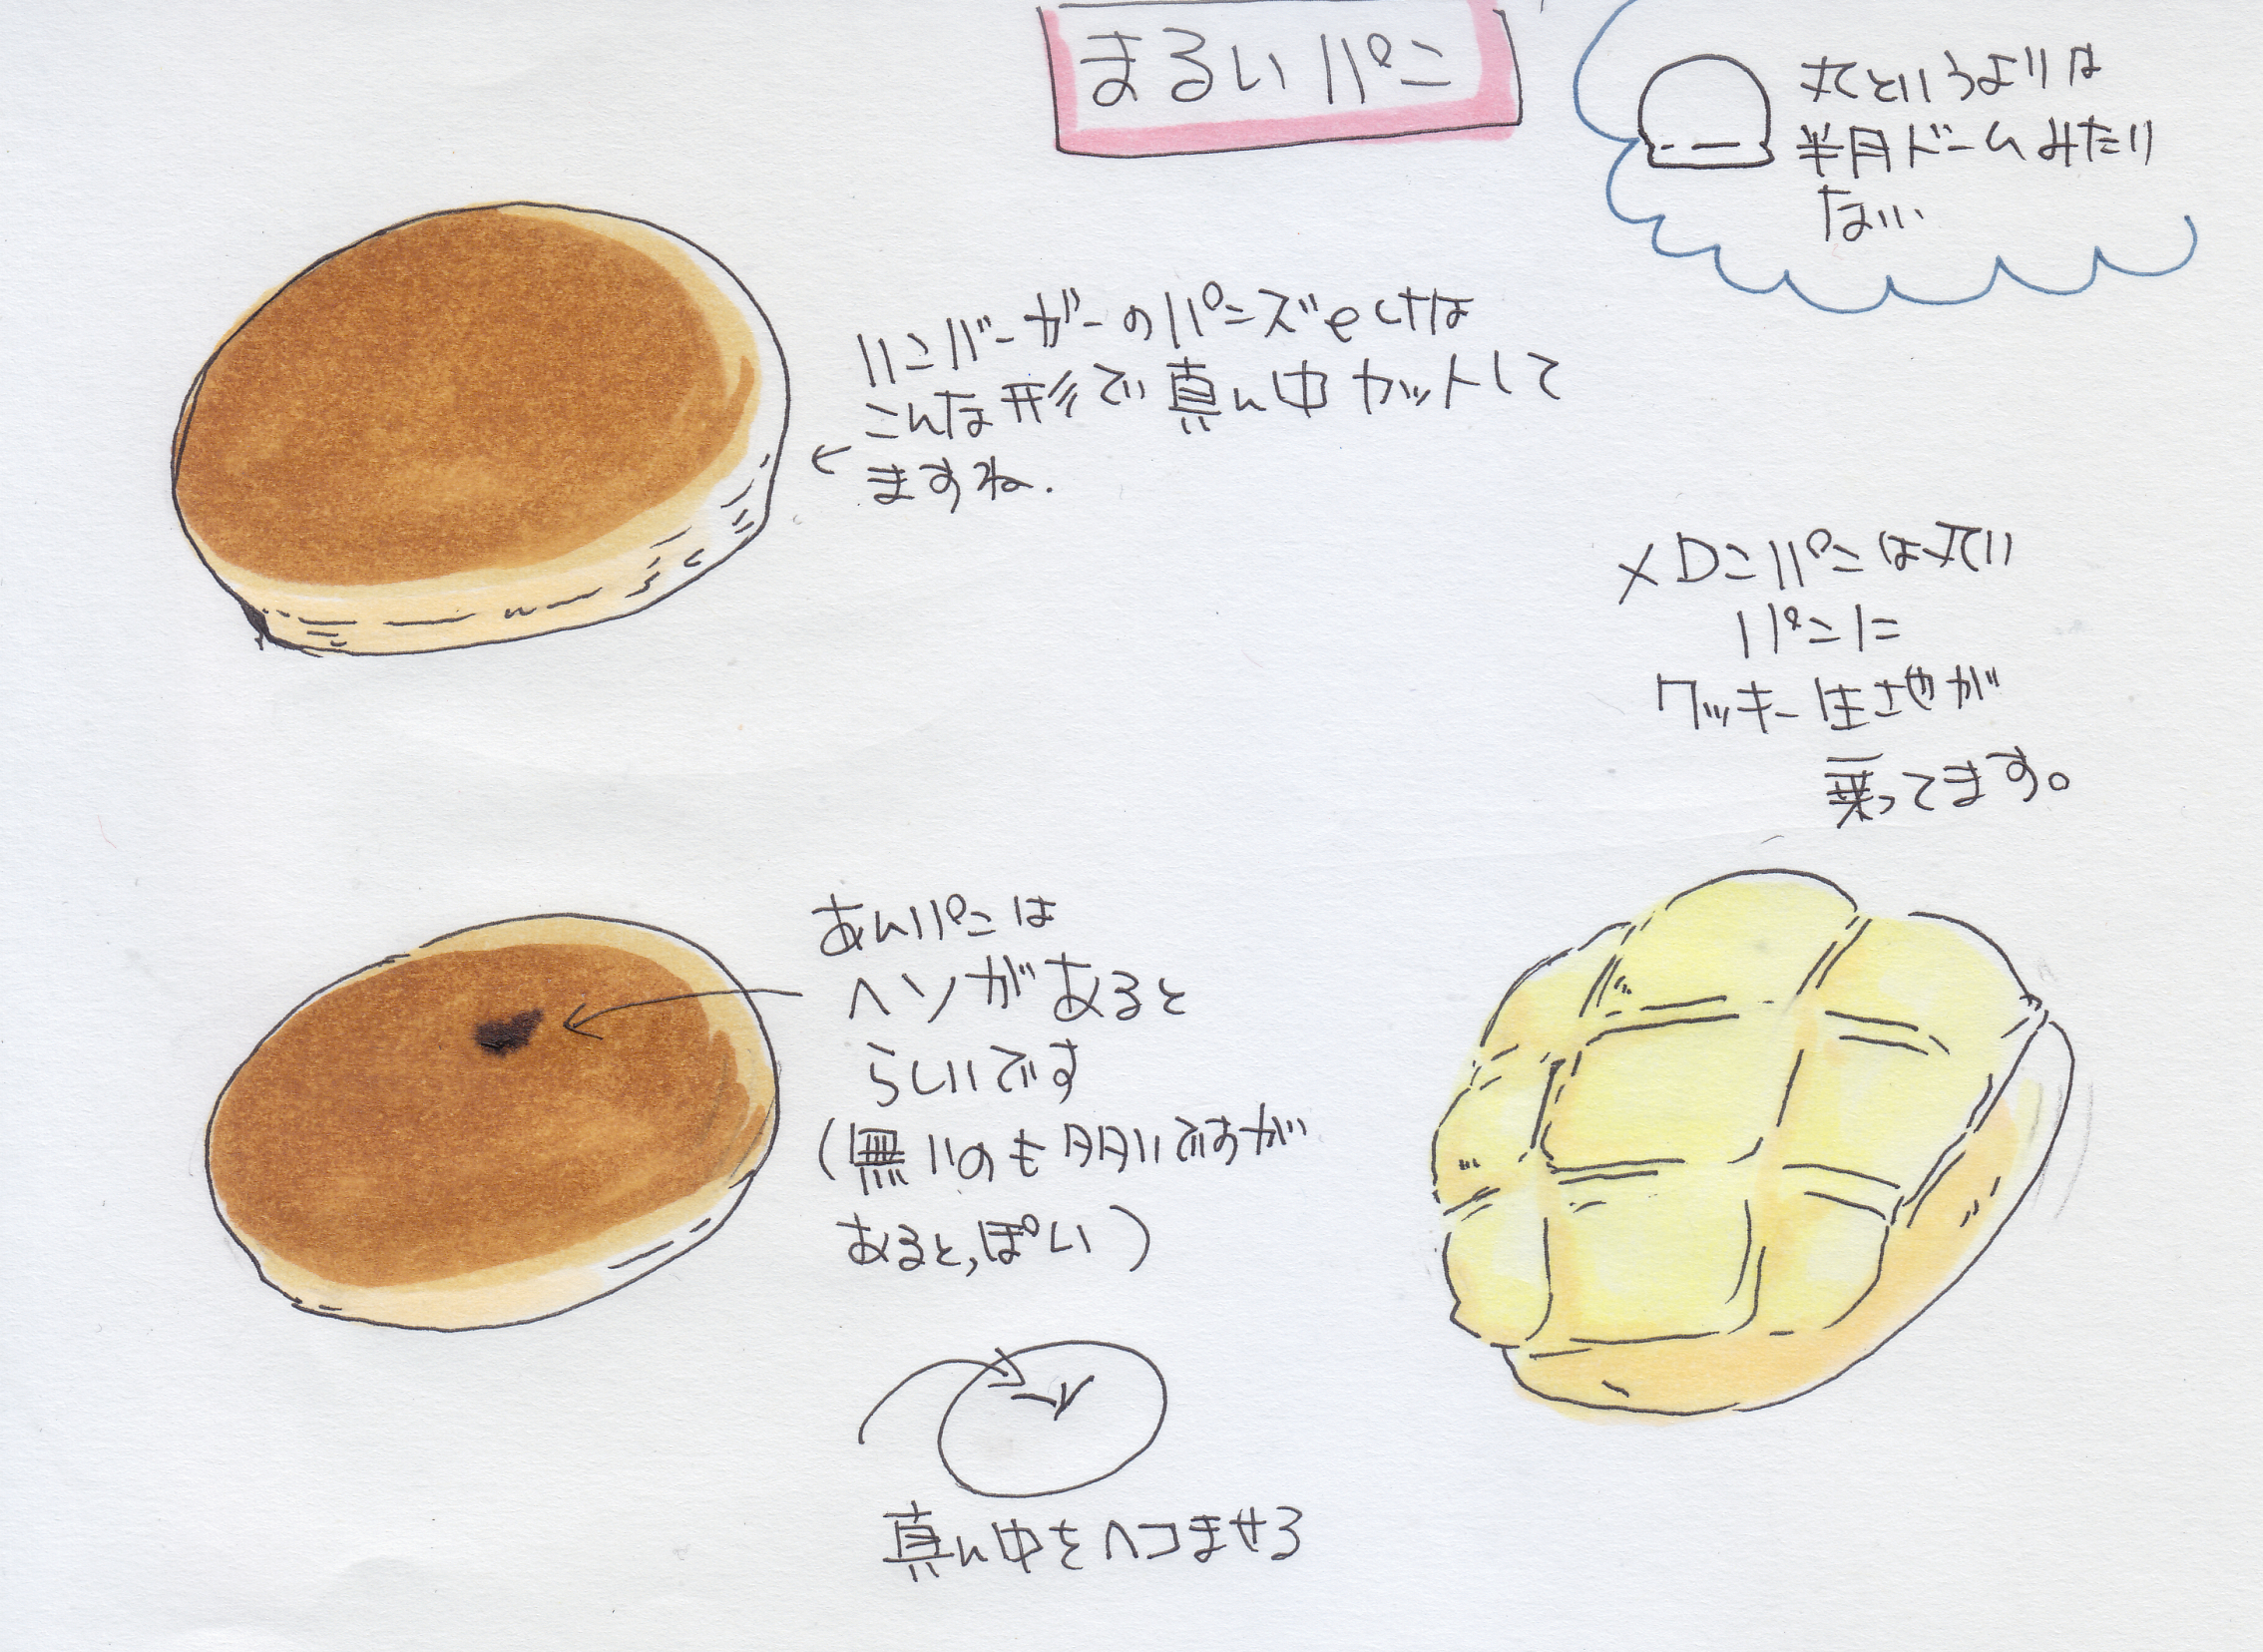 まるいパン
丸というよりは
半月ドームみたい
ない
ハンバーガーのパンズとかは
こんな形で真ん中カットして
ますね.
メロンパンは丸い
パンに
クッキー生さやが
乗ってます。
あんパンは
ヘソがあると
らしいです
(無いのも多いですが
あると,ぽい)
真ん中をヘコませる